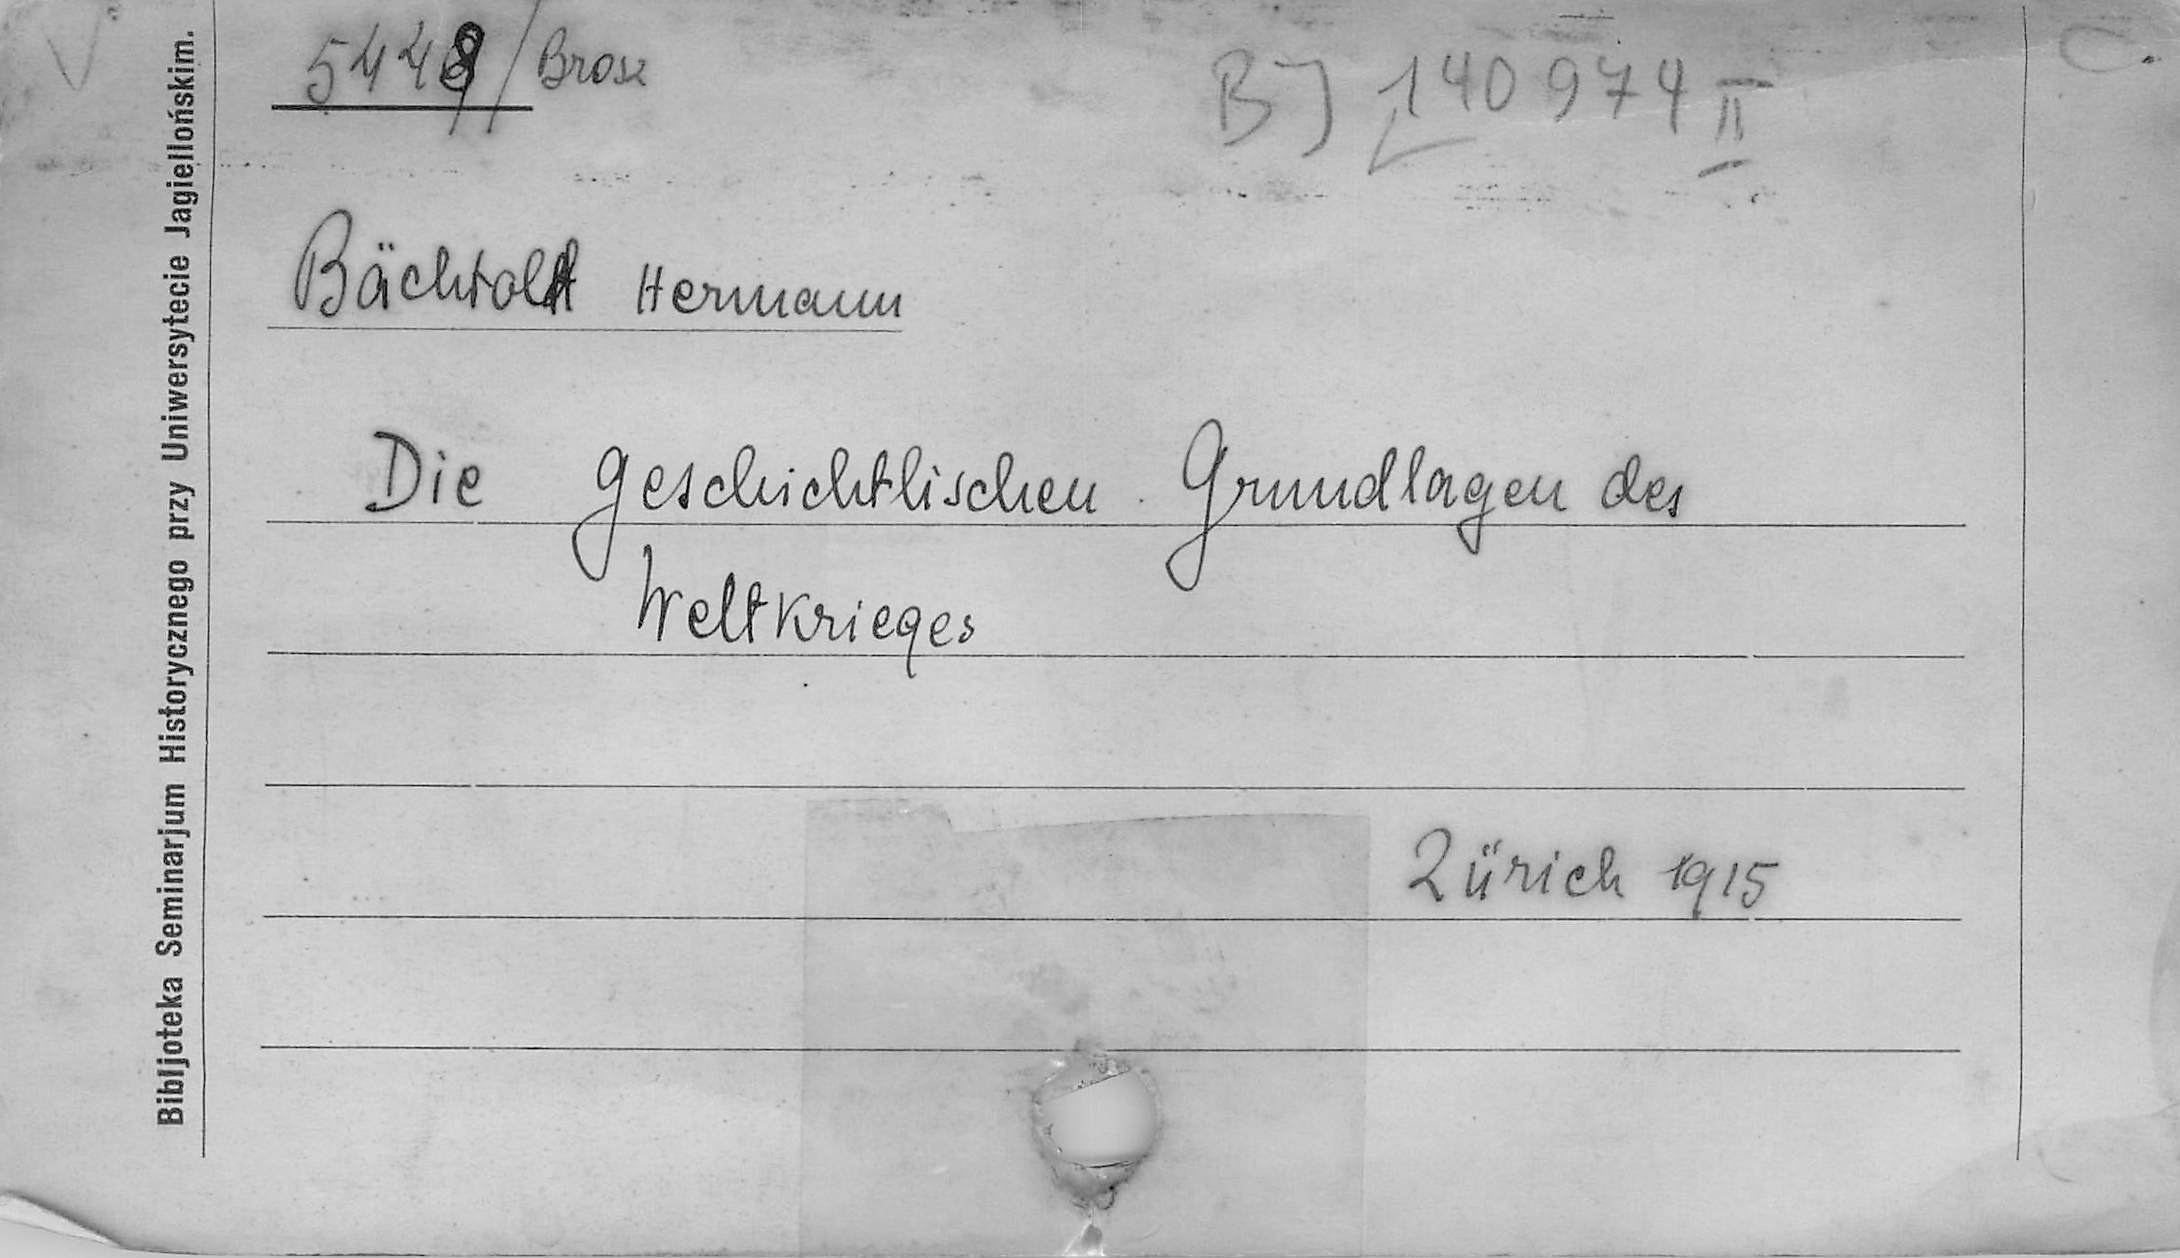 5448/Brosz
BJ 140 974 II
C.
Bächtold Hermann
Die geschichtlischen Grundlagen des
Weltkrieges
Zürich 1915
Bibljoteka Seminarjum Historycznego przy Uniwersytecie Jagiellońskim.